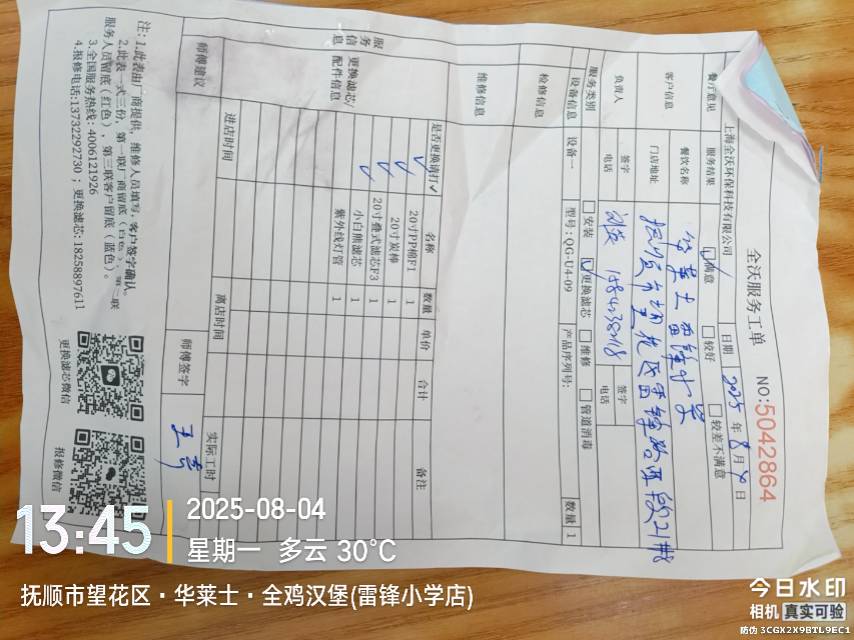 全沃服务工单
NO:5042864
上海全沃环保科技有限公司
日期 2025 年 8 月 4 日
餐厅意见 服务结果 满意 较好 较差不满意
客户信息 餐饮名称 华莱士 雷锋小学
门店地址
负责人 签字 电话 签字 电话
服务类别 安装 更换滤芯 维修 管道消毒
设备信息 设备一 型号:QG-U4-09 产品序列号: 数量 1
检修信息
维修信息
服务信息 更换滤芯/配件信息
是否更换请打✓ 名称 数量 单价 合计 备注
✓ 20寸PP棉F1 1
✓ 20寸炭棒 1
✓ 20寸叠式滤芯F3 1
小白熊滤芯 1
紫外线灯管 1
进店时间 离店时间 实际工时
师傅建议 师傅签字
注:1.此表由厂商提供,维修人员填写,客户签字确认。
2.此表一式三份,第一联厂商留底(白色)、第二联
服务人员留底(红色),第三联客户留底(蓝色)。
3.全国服务热线:4006121926
4.报修电话:13732292730;更换滤芯:18258897611
更换滤芯微信
报修微信
13:45
2025-08-04
星期一 多云 30°C
抚顺市望花区·华莱士·全鸡汉堡(雷锋小学店)
今日水印
相机 真实可验
防伪 3CGX2X9BTL9EC1